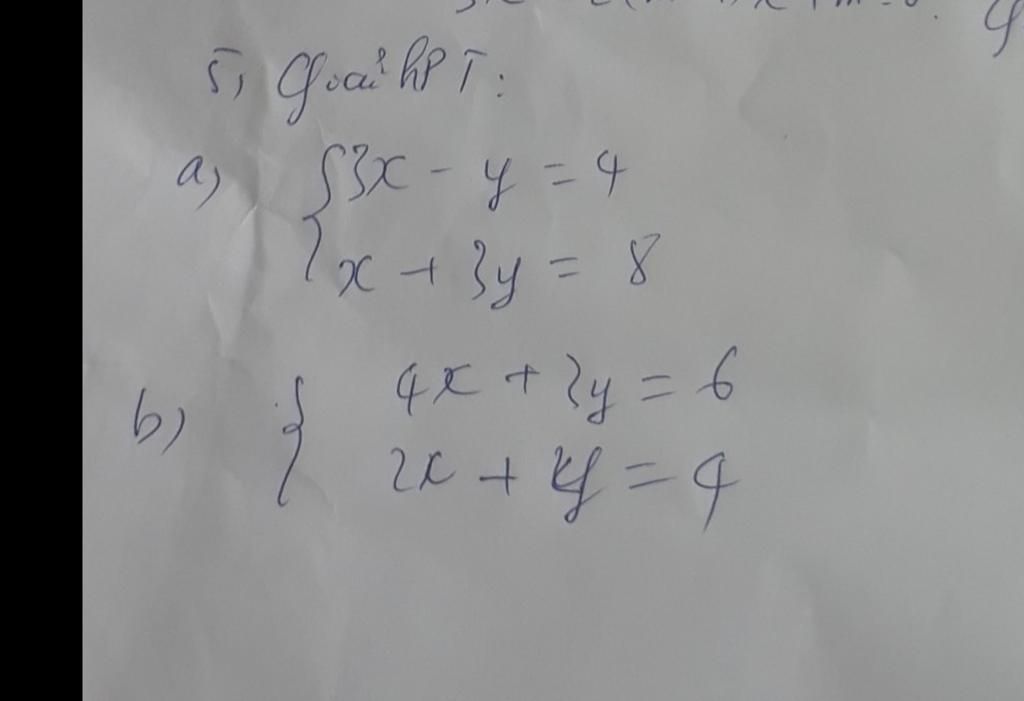 5, Giải hPT:
a, { 3x - y = 4
x + 3y = 8
b) { 4x + 3y = 6
2x + y = 4